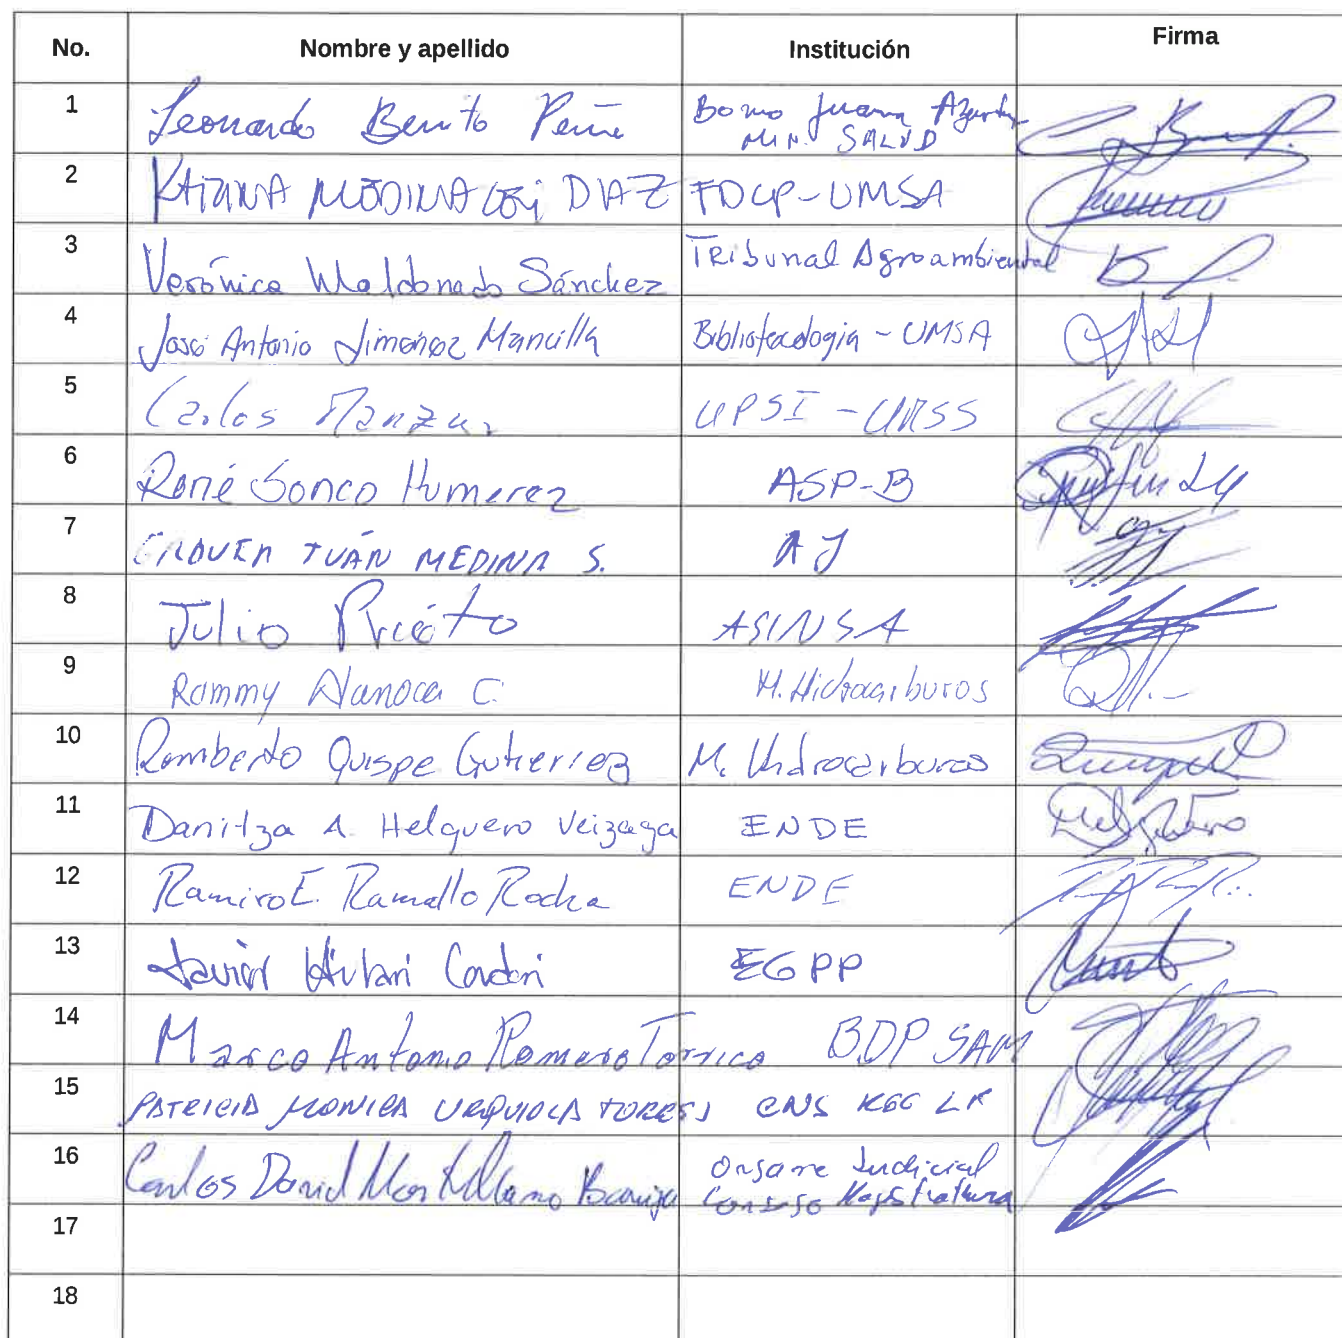 No. Nombre y apellido Institución Firma
1 Leonardo Benito Bono Juana Azurduy
Min. SALUD
2 MEDINACELI DIAZ FDCP-UMSA
3 Verónica Maldonado Sánchez Tribunal Agroambiental
4 José Antonio Jiménez Mancilla Bibliotecología - UMSA
5 Carlos Manzur UPSI - UMSS
6 René Sonco Humerez ASP-B
7 MEDINA S. AJ
8 Julio Prieto ASINSA
9 Rommy Alanoca C. M. Hidrocarburos
10 Romberto Quispe Gutierrez M. Hidrocarburos
11 Danitza A. Helguero Veizaga ENDE
12 Ramiro E. Ramallo Rocha ENDE
13 Javier Condori EGPP
14 Marco Antonio Romero Torrico BDP SAM
15 PATRICIA MONICA URQUIOLA TORRES CNS
16 Carlos David Organo Judicial
Consejo Magistratura
17
18